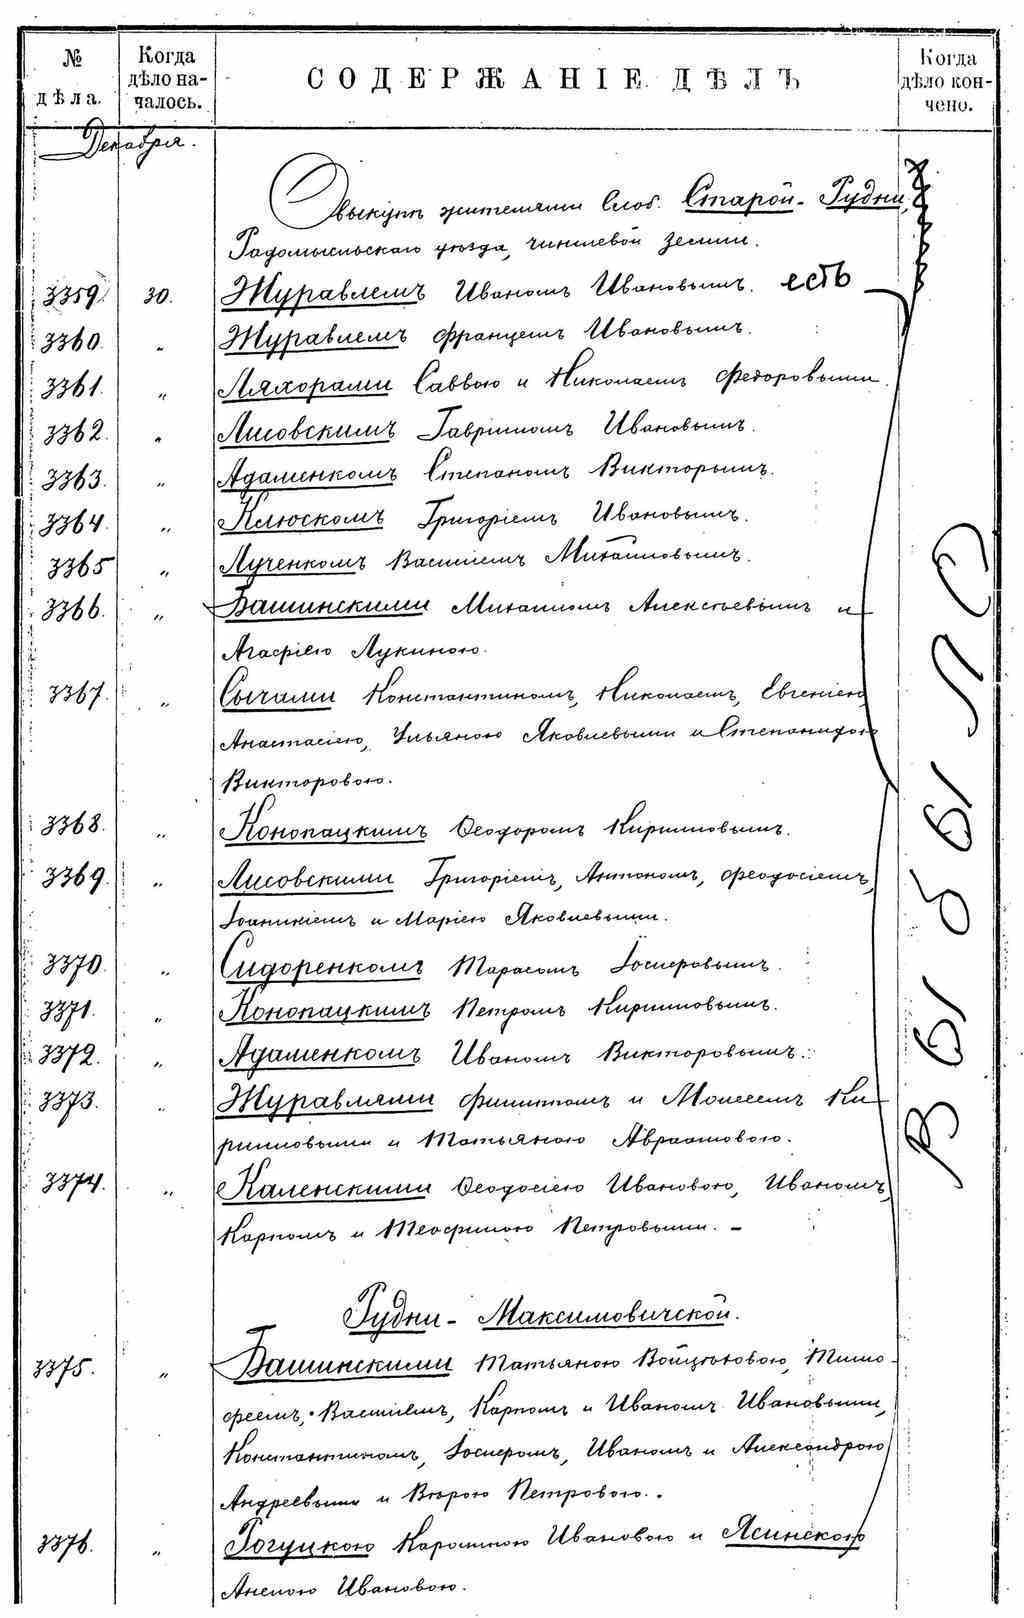 № дѣла.
Когда дѣло началось.
СОДЕРЖАНІЕ ДѢЛЪ
Когда дѣло кончено.
Декабря.
О выкупѣ жителями Слоб. Старой-Рудни,
Радомысльскаго уѣзда, чиншевой земли.
3359 30. Журавлемъ Иваномъ Ивановымъ. есть
3360. „ Журавлемъ Францемъ Ивановымъ.
3361. „ Ляхорами Саввою и Николаемъ Федоровыми.
3362. „ Лисовскимъ Гавріиломъ Ивановымъ.
3363. „ Адаменкомъ Степаномъ Викторымъ.
3364. „ Клюскомъ Григоріемъ Ивановымъ.
3365 „ Лученкомъ Василіемъ Михайловымъ.
3366. „ Башинскими Михаиломъ Алексѣевымъ и
Агафіею Лукиною.
3367. „ Сычами Константиномъ, Николаемъ, Евгеніею,
Анастасіею, Ульяною Яковлевыми и Степанидою
Викторовою.
3368. „ Конопацкимъ Ѳеодоромъ Кирилловымъ.
3369. „ Лисовскими Григоріемъ, Антономъ, Феодосіемъ,
Іоаникіемъ и Маріею Яковлевыми.
3370. „ Сидоренкомъ Тарасомъ Іосифовымъ.
3371. „ Конопацкимъ Петромъ Кирилловымъ.
3372. „ Адаменкомъ Иваномъ Викторовымъ.
3373. „ Журавлями Филиппомъ и Моисеемъ Ки-
рилловыми и Татьяною Авраамовою.
3374. „ Каленскими Ѳеодосіею Ивановою, Иваномъ,
Карпомъ и Теофилою Петровыми. –
Рудни-Максимовичской.
3375. „ Башинскими Татьяною Войцѣховою, Тимо-
феемъ, Василіемъ, Карпомъ и Иваномъ Ивановыми,
Константиномъ, Іосифомъ, Иваномъ и Александрою
Андреевыми и Вѣрою Петровою.
3376. „ Рогуцкою Каролиною Ивановою и Ясинскою
Анелою Ивановою.
ВЫБЫЛО